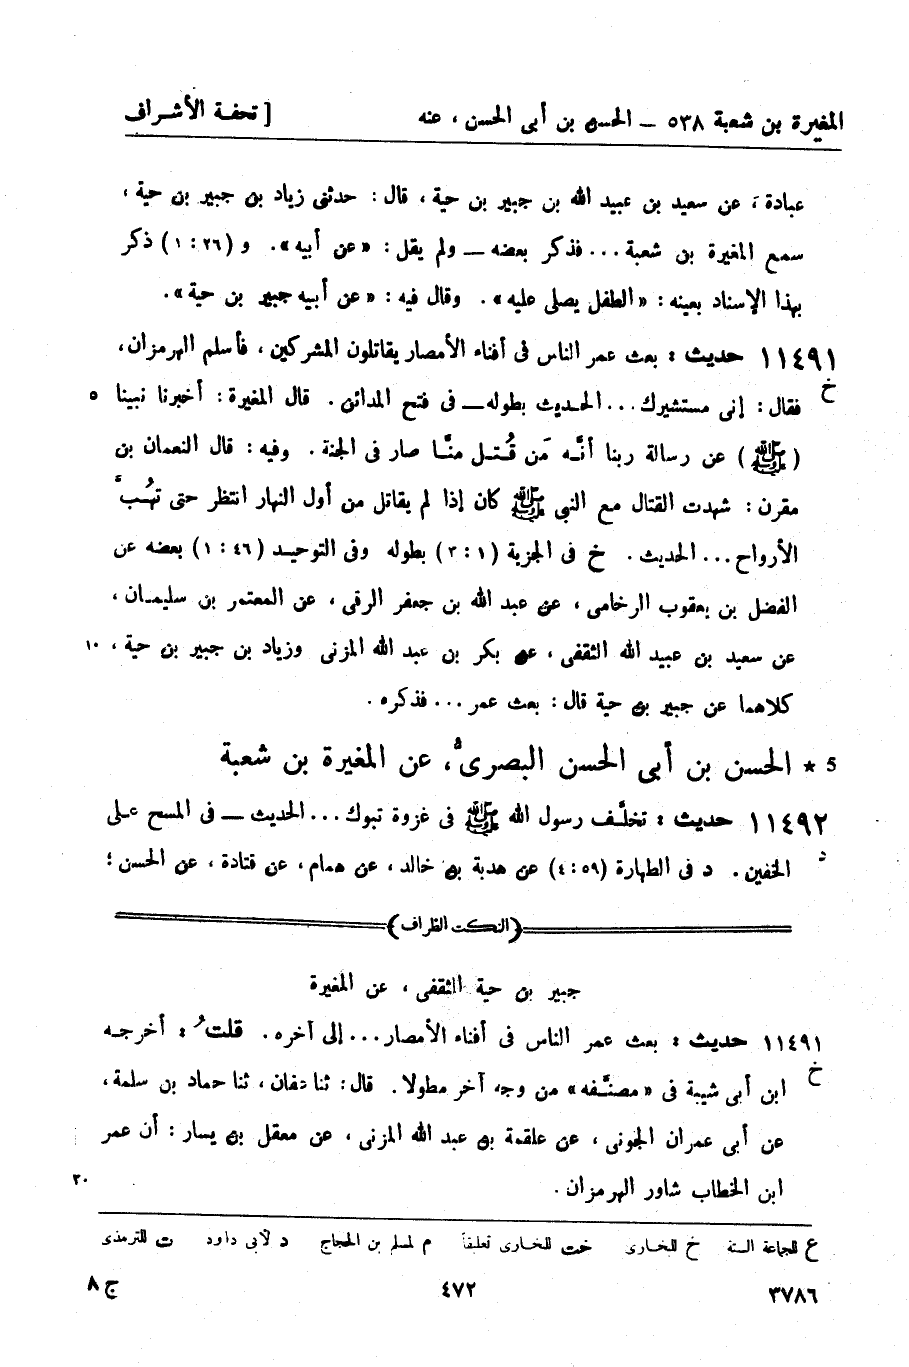 المغيرة بن شعبة ٥٣٨ ــ الحسن بن أبى الحسن ، عنه [ تحفة الأشراف
عبادة ، عن سعيد بن عبيد الله بن جبير بن حية ، قال : حدثنى زياد بن جبير بن حية ،
سمع المغيرة بن شعبة ... فذكر بعضه ــ ولم يقل : « عن أبيه » . و (٢٦ : ١) ذكر
بهذا الإسناد بعينه : « الطفل يصلى عليه » . وقال فيه : « عن أبيه جبير بن حية » .
١١٤٩١ حديث : بعث عمر الناس فى أفناء الأمصار يقاتلون المشركين ، فأسلم الهرمزان ،
خ فقال : إنى مستشيرك ... الحديث بطوله ــ فى فتح المدائن . قال المغيرة : أخبرنا نبينا ٥
(ﷺ) عن رسالة ربنا أنَّه مَن قُتـل منَّا صار فى الجنة . وفيه : قال النعمان بن
مقرن : شهدت القتال مع النبى ﷺ كان إذا لم يقاتل من أول النهار انتظر حتى تهُبَّ
الأرواح ... الحديث . خ فى الجزية (١ : ٣) بطوله وفى التوحيد (٤٦ : ١) بعضه عن
الفضل بن يعقوب الرخامى ، عن عبد الله بن جعفر الرقى ، عن المعتمر بن سليمان ،
عن سعيد بن عبيد الله الثقفى ، عن بكر بن عبد الله المزنى وزياد بن جبير بن حية ، ١٠
كلاهما عن جبير بن حية قال : بعث عمر ... فذكره .
5 * الحسن بن أبى الحسن البصرى ، عن المغيرة بن شعبة
١١٤٩٢ حديث : تخلَّف رسول الله ﷺ فى غزوة تبوك ... الحديث ــ فى المسح على
د الخفين . د فى الطهارة (٥٩ : ٤) عن هدبة بن خالد ، عن همام ، عن قتادة ، عن الحسن ؛
(النكت الظراف)
جبير بن حية الثقفى ، عن المغيرة
١١٤٩١ حديث : بعث عمر الناس فى أفناء الأمصار ... إلى آخره . قلتُ : أخرجه
خ ابن أبى شيبة فى « مصنَّفه » من وجه آخر مطولا . قال : ثنا عفان ، ثنا حماد بن سلمة ،
عن أبى عمران الجونى ، عن علقمة بن عبد الله المزنى ، عن معقل بن يسار : أن عمر
ابن الخطاب شاور الهرمزان . ٢٠
ع للجاعة الستة خ للبخارى خت للبخارى تعليقاً م لمسلم بن الحجاج د لأبى داود ت للترمذى
٣٧٨٦ ٤٧٢ ج ٨